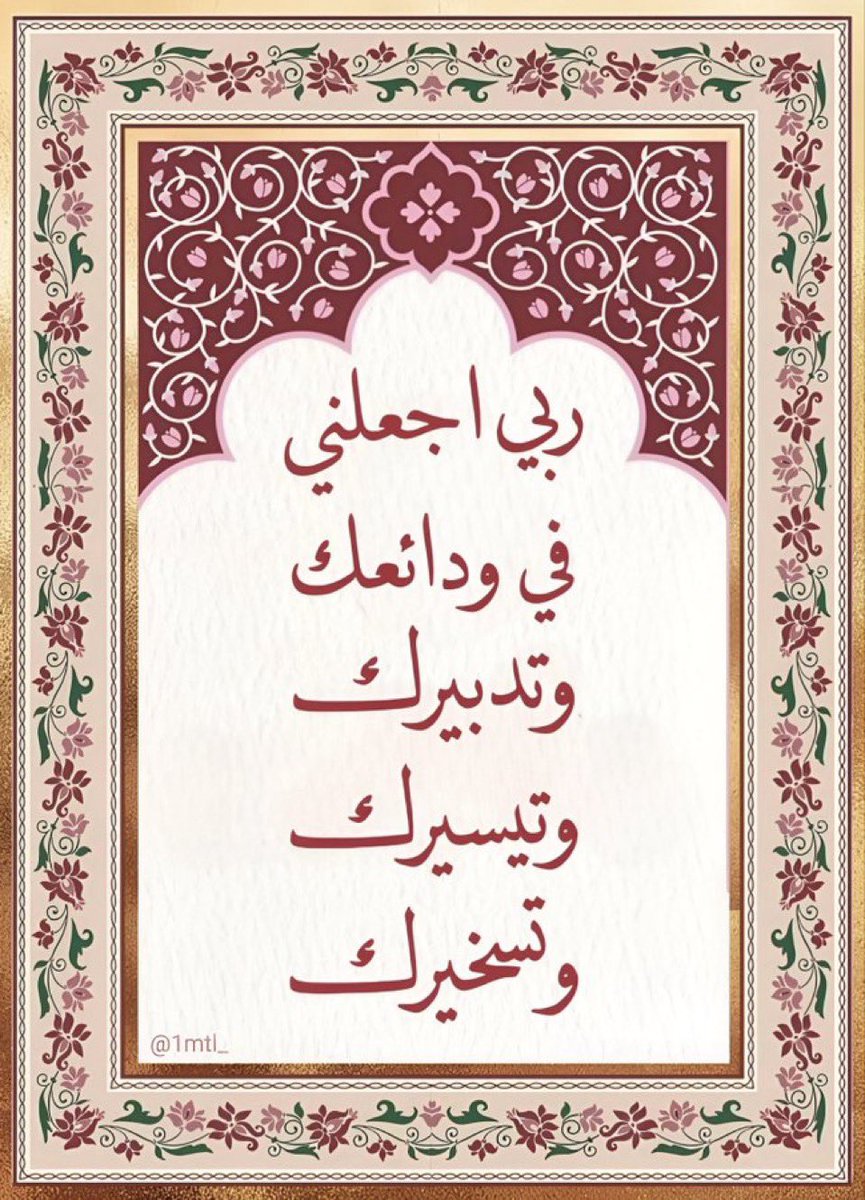 ربي اجعلني
في ودائعك
وتدبيرك
وتيسيرك
وتسخيرك
@1mtl_